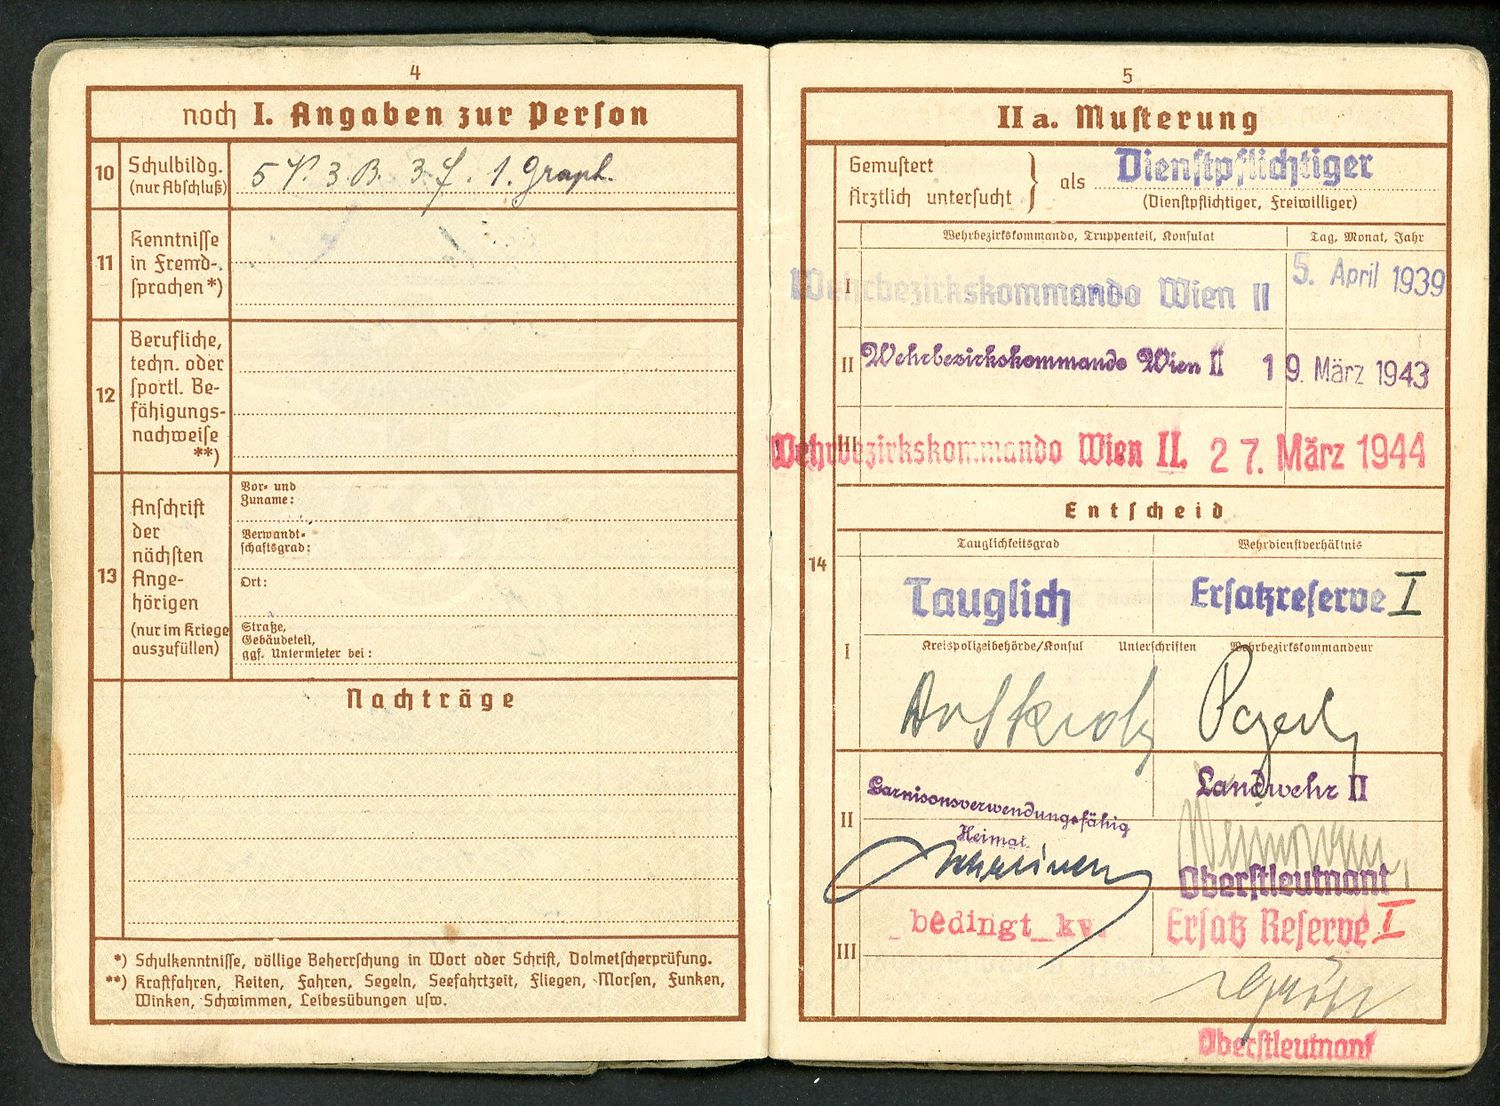 4
noch I. Angaben zur Person
10 Schulbildg.
(nur Abschluß)
5 V. 3 B. 3 J. 1. Graph.
11 Kenntnisse
in Fremd-
sprachen *)
12 Berufliche,
techn. oder
sportl. Be-
fähigungs-
nachweise
**)
13 Anschrift
der
nächsten
Ange-
hörigen
(nur im Kriege
auszufüllen)
Vor- und
Zuname:
Verwandt-
schaftsgrad:
Ort:
Straße,
Gebäudeteil,
ggf. Untermieter bei:
Nachträge
*) Schulkenntnisse, völlige Beherrschung in Wort oder Schrift, Dolmetscherprüfung.
**) Kraftfahren, Reiten, Fahren, Segeln, Seefahrtzeit, Fliegen, Morsen, Funken,
Winken, Schwimmen, Leibesübungen usw.
5
II a. Musterung
Gemustert
Ärztlich untersucht
als Dienstpflichtiger
(Dienstpflichtiger, Freiwilliger)
Wehrbezirkskommando, Truppenteil, Konsulat Tag, Monat, Jahr
I Wehrbezirkskommando Wien II 5. April 1939
II Wehrbezirkskommando Wien II 19. März 1943
III Wehrbezirkskommando Wien II. 27. März 1944
Entscheid
14
Tauglichkeitsgrad Wehrdienstverhältnis
Tauglich Ersatzreserve I
I Kreispolizeibehörde/Konsul Unterschriften Wehrbezirkskommandeur
II Garnisonsverwendungsfähig
Heimat.
Landwehr II
Oberstleutnant
III bedingt kv. Ersatz Reserve I
Oberstleutnant